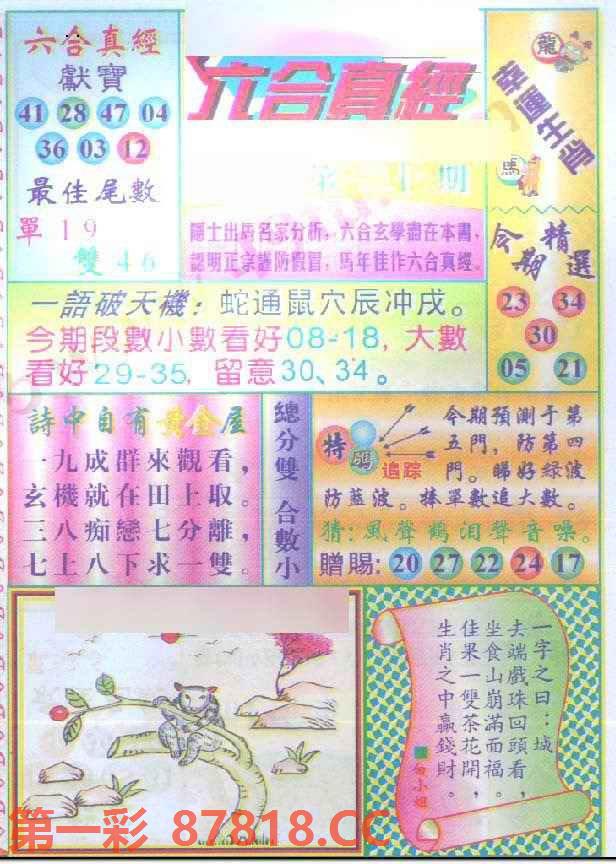 六合真經
獻寶
41 28 47 04
36 03 12
最佳尾數
單 1 9
雙 4 6
六合真經
期
隱士出馬名家分析，六合玄學盡在本書，
認明正宗謹防假冒，馬年佳作六合真經。
龍
幸運生肖
馬
今期精選
23 34
30
05 21
一語破天機：蛇通鼠穴辰冲戌。
今期段數小數看好08-18，大數
看好29-35，留意30、34。
詩中自有黃金屋
一九成群來觀看，
玄機就在田上取。
三八痴戀七分離，
七上八下求一雙。
總分雙 合數小
特
碼
追踪
今期預測于第
五門，防第四
門。睇好綠波
防藍波。捧單數追大數。
猜：風聲鶴泪聲音噪。
贈賜：20 27 22 24 17
一字之曰：城
去端戲珠回頭看，
坐食山崩滿而福。
佳果一雙茶花開，
生肖之中贏錢財。
白小姐
第一彩 87818.CC